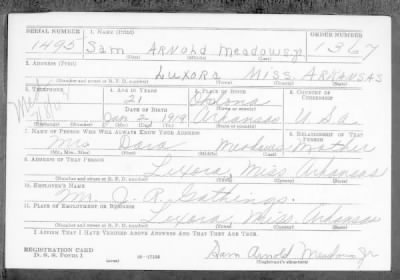 SERIAL NUMBER 1. NAME (Print) ORDER NUMBER
1495 Sam ARNOLD Meadows jr 1367
2. ADDRESS (Print)
LUXORA MISS. ARKANSAS
(Number and street or R. F. D. number)
3. TELEPHONE 4. AGE IN YEARS 5. PLACE OF BIRTH 6. COUNTRY OF CITIZENSHIP
21
DATE OF BIRTH
Jan 2 1919 Arkansas U S a
7. NAME OF PERSON WHO WILL ALWAYS KNOW YOUR ADDRESS 8. RELATIONSHIP OF THAT PERSON
Mrs Dora Meadows Mother
(Mr., Mrs., Miss) (First) (Middle) (Last)
9. ADDRESS OF THAT PERSON
Luxora, Miss Arkansas
(Number and street or R. F. D. number)
10. EMPLOYER'S NAME
Mr. J. R. Gathings.
11. PLACE OF EMPLOYMENT OR BUSINESS
Luxora Miss. Arkansas
(Number and street or R. F. D. number)
I AFFIRM THAT I HAVE VERIFIED ABOVE ANSWERS AND THAT THEY ARE TRUE.
REGISTRATION CARD
D. S. S. Form 1 Sam Arnold Meadows Jr
(Registrant's signature)